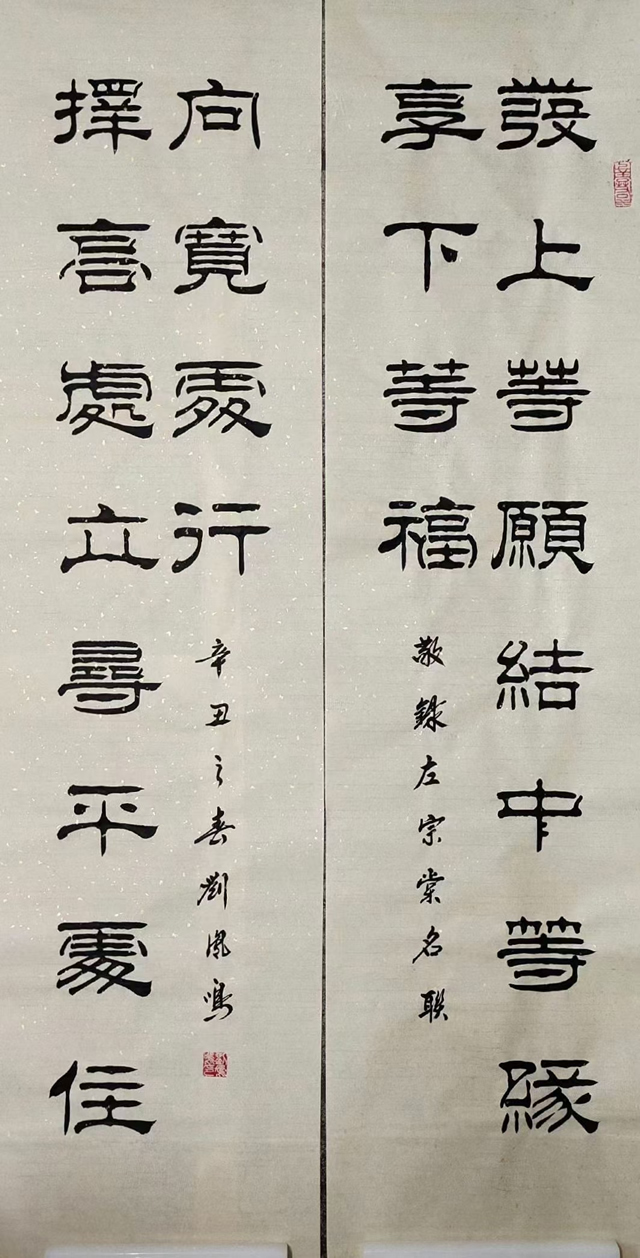 發上等願結中等緣
享下等福
敬錄左宗棠名聯
擇高處立尋平處住
向寬處行
辛丑之春劉鳳鳴